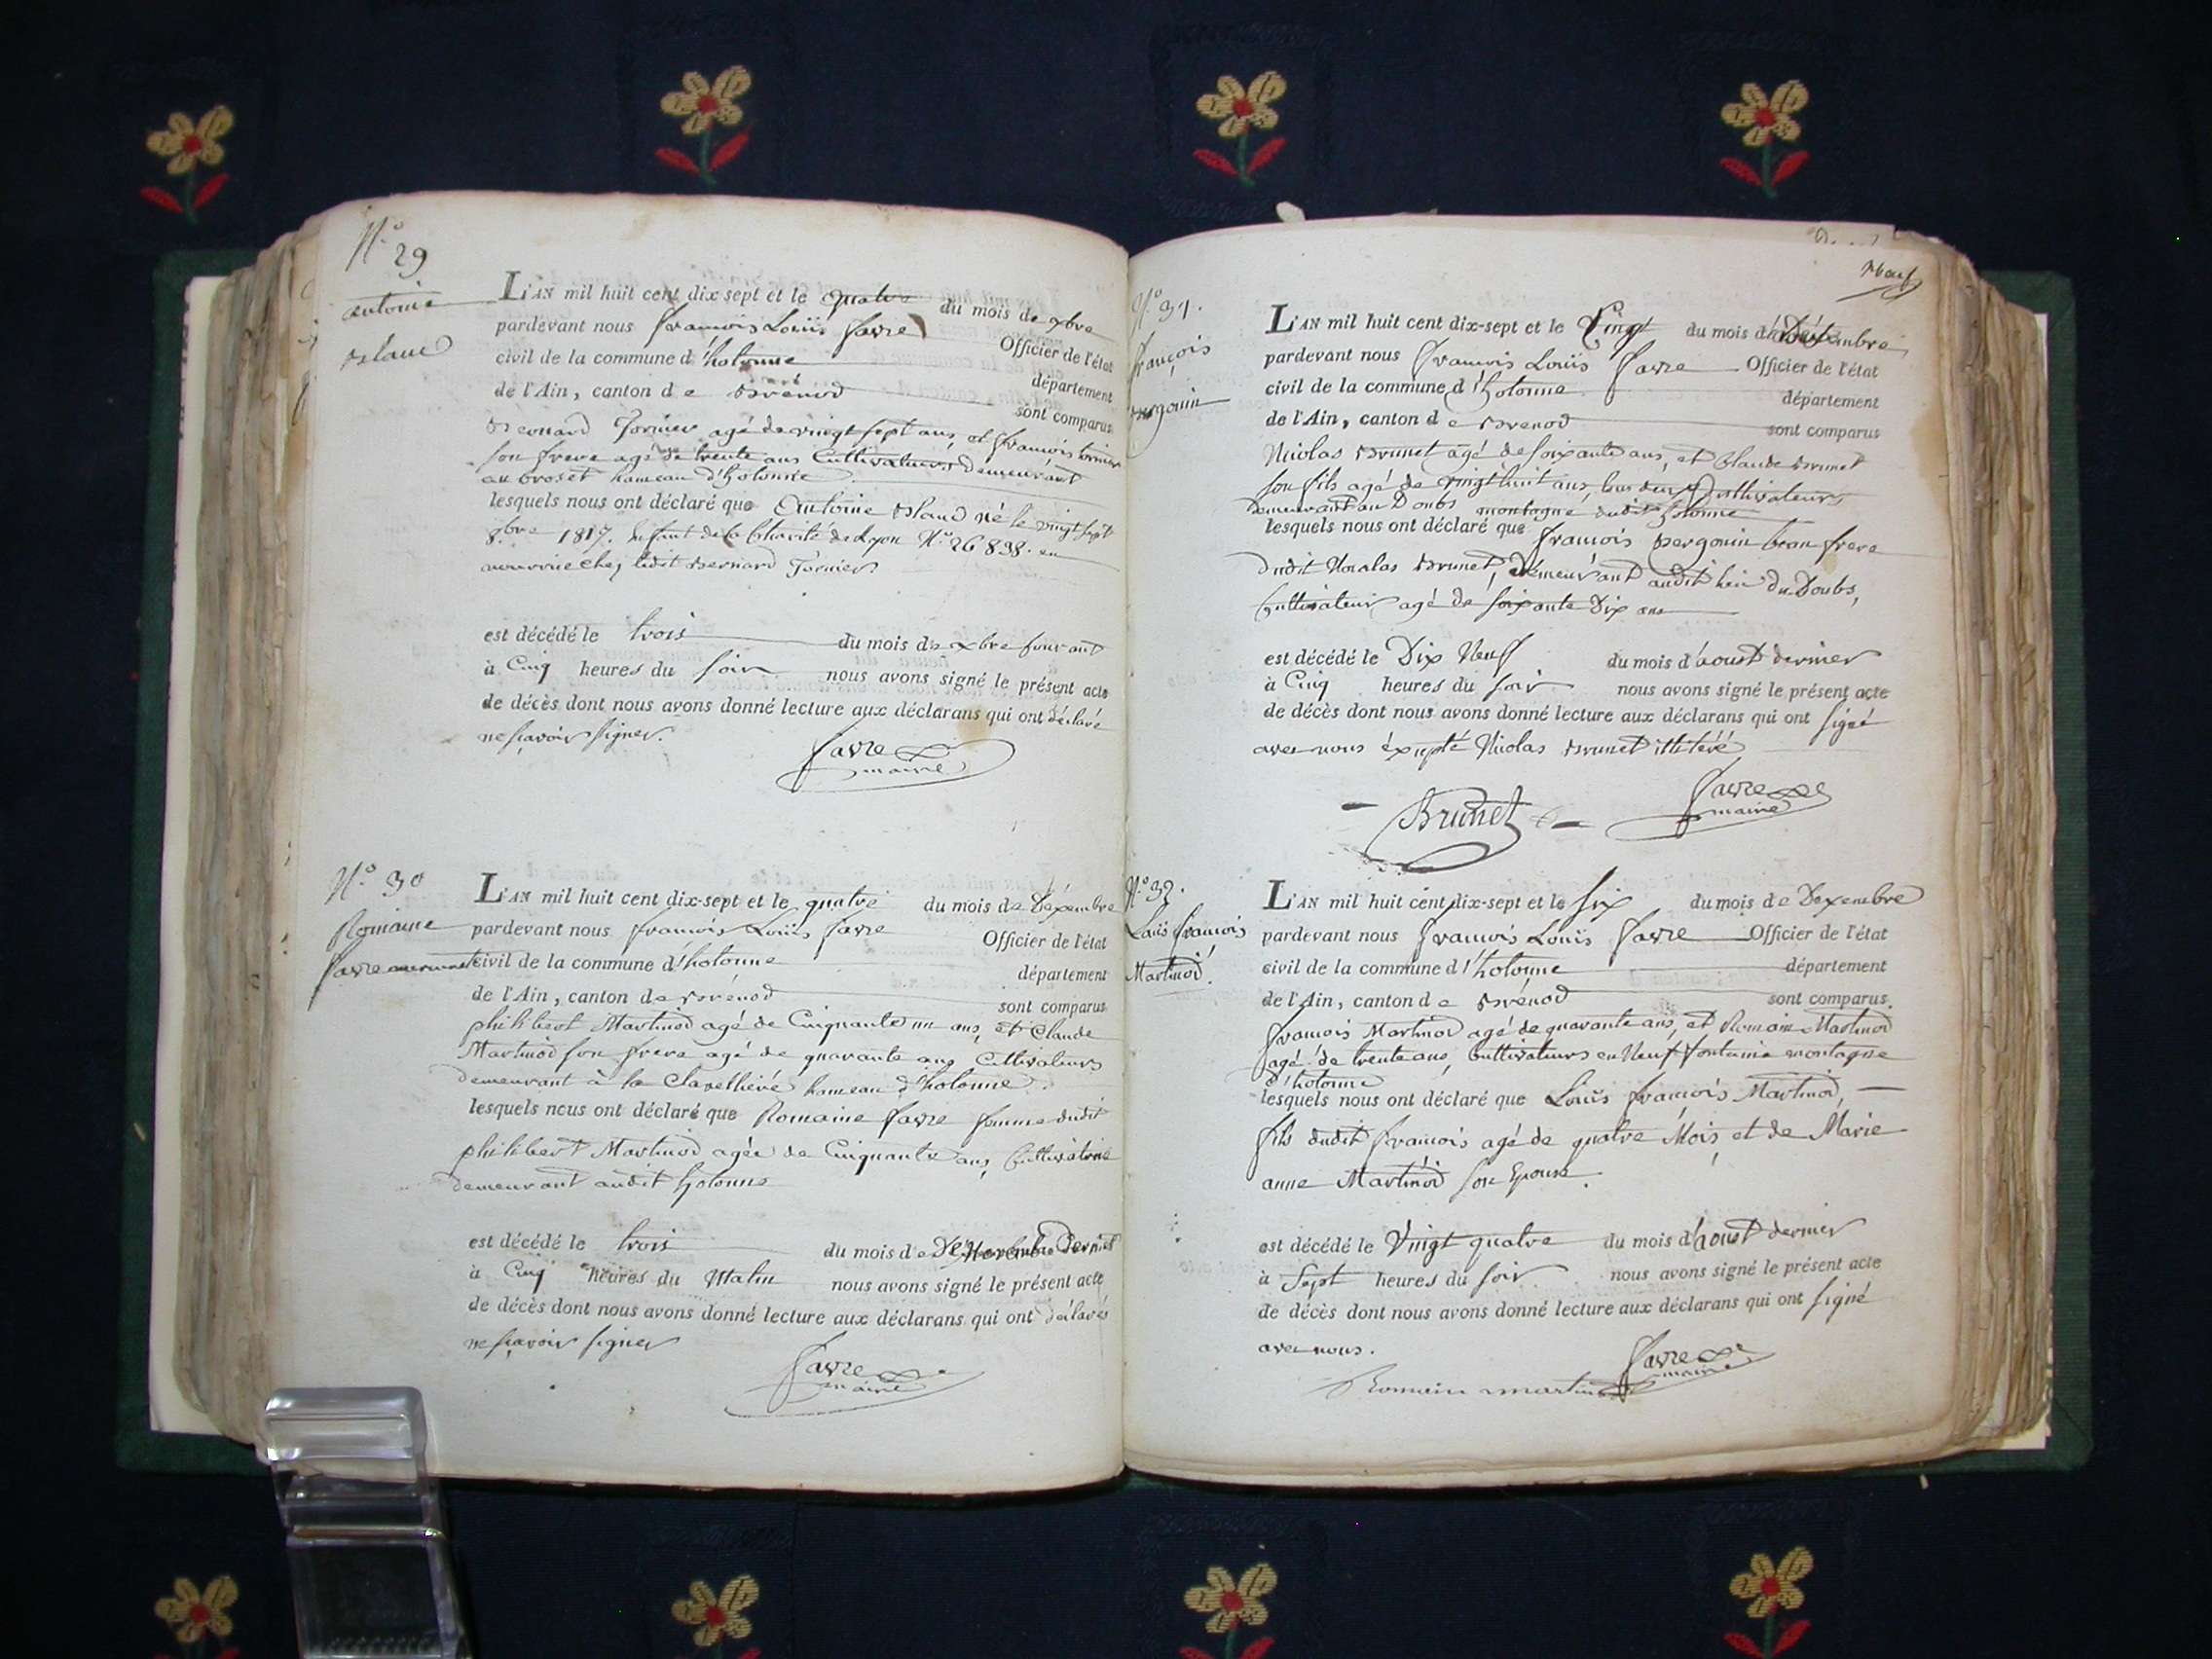 N.o 29
antoine
L'AN mil huit cent dix sept et le quatre du mois de xbre
pardevant nous françois Louïs favre Officier de l'état
civil de la commune d'hotonne département
de l'Ain, canton de Brénod sont comparus
Bernard Tornier agé de vingt sept ans, et françois tornier
son frere agé de trente ans Cultivateurs demeurant
au hameau d'hotonne
lesquels nous ont déclaré que Antoine né le vingt sept
8.bre 1817. Enfant de la Charité de Lyon N.o 26898. en
nourrice chez ledit Bernard Tornier.
est décédé le trois du mois de xbre courant
à Cinq heures du soir nous avons signé le présent acte
de décès dont nous avons donné lecture aux déclarans qui ont déclaré
ne sçavoir signer.
favre
maire
N.o 30
Romaine
favre
L'AN mil huit cent dix-sept et le quatre du mois de Dexembre
pardevant nous françois Louïs favre Officier de l'état
civil de la commune d'hotonne département
de l'Ain, canton de Brénod sont comparus
philibert Martinod agé de Cinquante un ans, et Claude
Martinod son frere agé de quarante ans Cultivateurs
demeurant à la hameau d'hotonne.
lesquels nous ont déclaré que Romaine favre femme dudit
philibert Martinod agée de Cinquante ans, Cultivatrice
demeurant audit hotonne
est décédé le trois du mois de
à Cinq heures du Matin nous avons signé le présent acte
de décès dont nous avons donné lecture aux déclarans qui ont déclarés
ne sçavoir signer
favre
maire
Neuf
N.o 31.
françois
Bergonin
L'AN mil huit cent dix-sept et le Vingt du mois
pardevant nous françois Louïs favre Officier de l'état
civil de la commune d'hotonne département
de l'Ain, canton de Brenod sont comparus
Nicolas Brunet agé de soixante ans, et Claude Brunet
son fils agé de vingt huit ans, tous deux Cultivateurs
demeurant au Doubs montagne dudit hotonne
lesquels nous ont déclaré que françois Bergonin beau frere
dudit Nicolas Brunet, demeurant audit lieu du Doubs,
Cultivateur agé de soixante Dix ans
est décédé le Dix Neuf du mois d'aoust dernier
à Cinq heures du soir nous avons signé le présent acte
de décès dont nous avons donné lecture aux déclarans qui ont signé
avec nous éxcepté Nicolas Brunet illitéré
Brunet
favre
maire
N.o 32.
Louis françois
Martinod.
L'AN mil huit cent dix-sept et le six du mois de Dexembre
pardevant nous françois Louïs favre Officier de l'état
civil de la commune d'hotonne département
de l'Ain, canton de Brénod sont comparus
françois Martinod agé de quarante ans, et Romain Martinod
agé de trente ans, Cultivateurs en Neuf fontaine montagne
d'hotonne
lesquels nous ont déclaré que Louïs françois Martinod,
fils dudit françois agé de quatre Mois, et de Marie
anne Martinod son Epouse.
est décédé le Vingt quatre du mois d'aoust dernier
à Sept heures du soir nous avons signé le présent acte
de décès dont nous avons donné lecture aux déclarans qui ont signé
avec nous.
Romain martinod
favre
maire